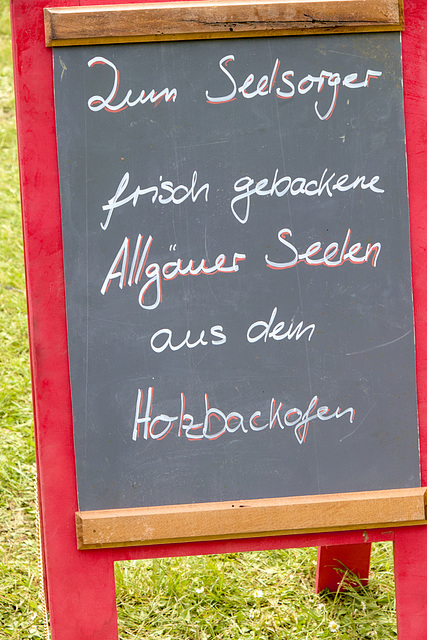 Zum Seelsorger
frisch gebackene
Allgäuer Seelen
aus dem
Holzbackofen